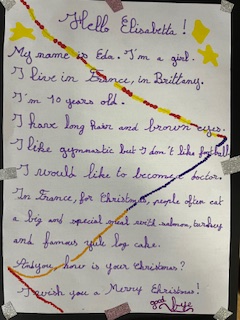 Hello Elisabetta !
My name is Eda. I'm a girl.
I live in France, in Brittany.
I'm 10 years old.
I have long hair and brown eyes.
I like gymnastic but I don't like football
I would like to become a doctor.
In France, for Christmas, people often eat
a big and special meal with salmon, turkey
and famous yule log cake.
And you, how is your Christmas?
I wish you a Merry Christmas!
good bye